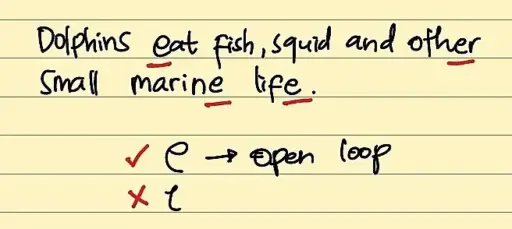 Dolphins eat fish, squid and other
small marine life.
✓ e → open loop
✗ ɩ